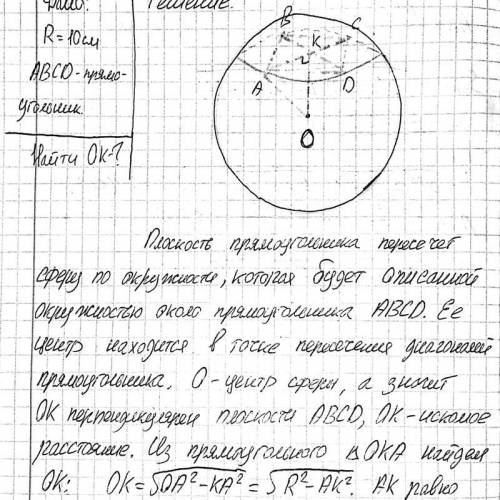 Дано:
Решение.
R=10см
ABCD-прямо-
угольник.
Найти OK-?
B
C
K
r
A
D
O
Плоскость прямоугольника пересечет
сферу по окружности, которая будет описанной
окружностью около прямоугольника ABCD. Ее
центр находится в точке пересечения диагоналей
прямоугольника. O-центр сферы, а значит
OK перпендикулярен плоскости ABCD, OK-искомое
расстояние. Из прямоугольного ΔOKA найдем
OK: OK=√OA²-KA² = √R²-AK². AK равно